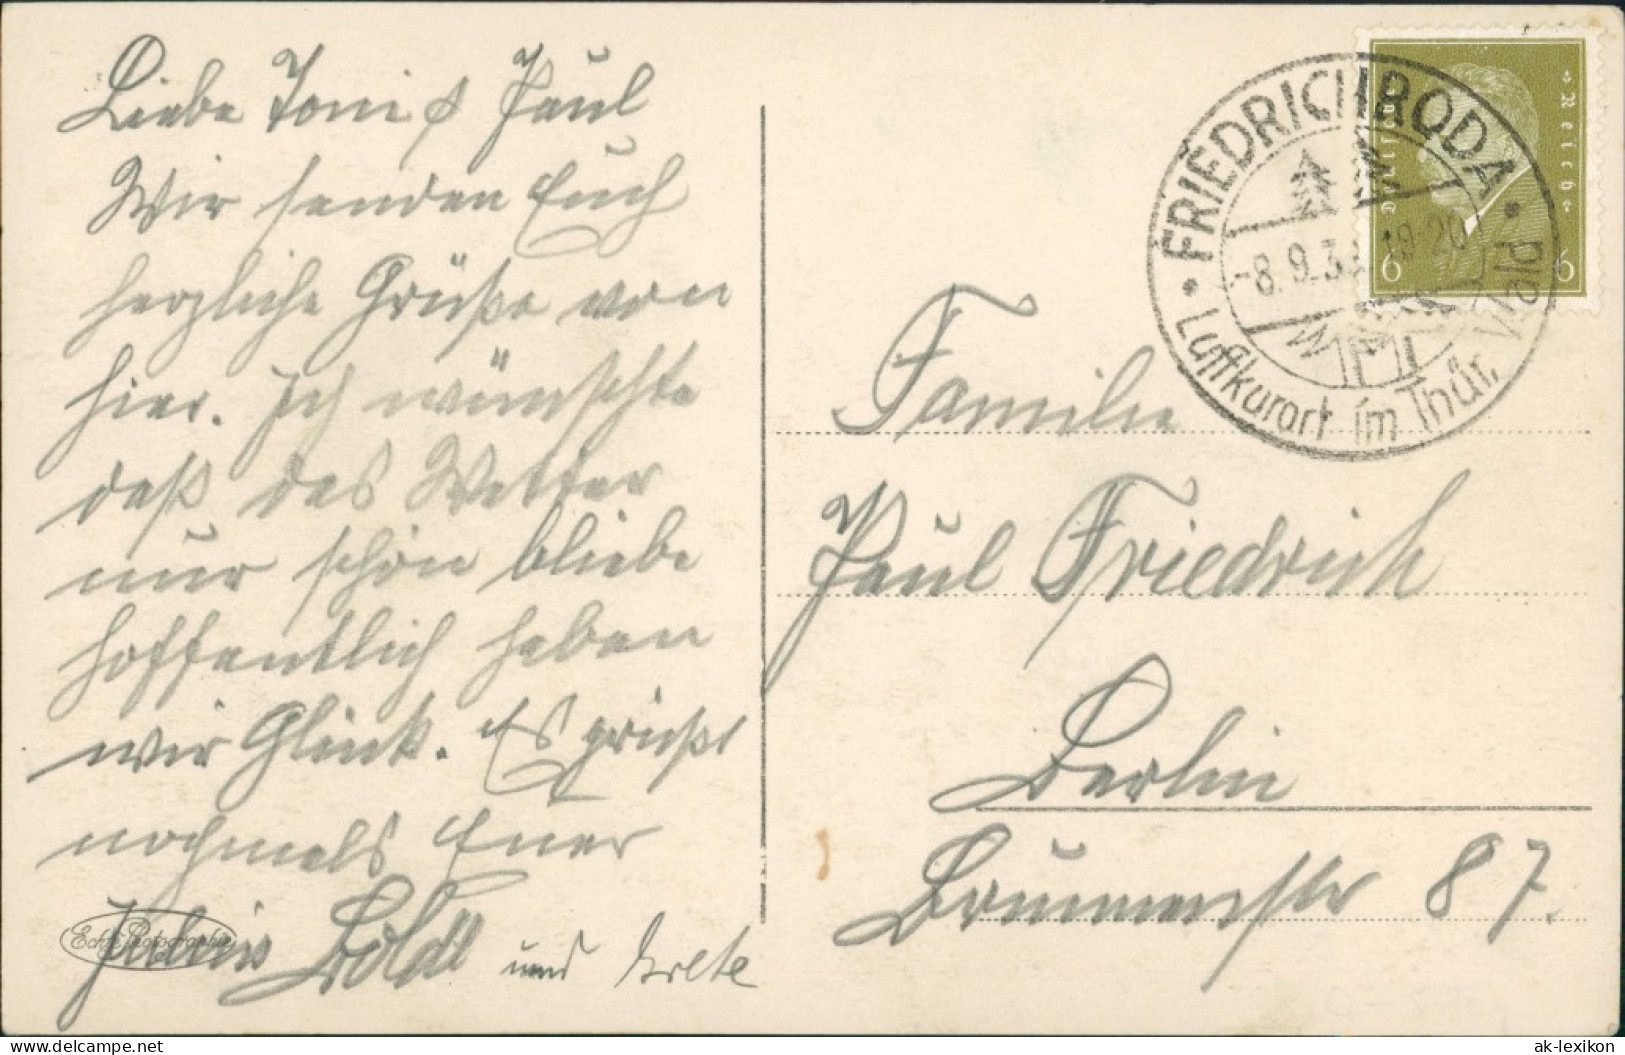 Liebe Toni & Paul
Wir senden Euch
herzliche Grüße von
hier. Ich wünschte
daß das Wetter
nur schön bliebe
hoffentlich haben
wir Glück. Es grüßt
nochmals Euer
Julius Boldt und Grete
Echte Photographie
Familie
Paul Friedrich
Berlin
Brunnenstr 87.
FRIEDRICHRODA
-8.9.3 19-20
Luftkurort im Thür. Wald
Deutsches Reich
6 6
delcampe.net
ak-lexikon